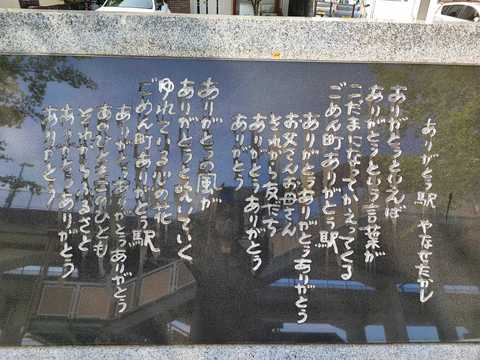 ありがとう駅 やなせたかし
ありがとうといえば
ありがとうという言葉が
こだまになってかえってくる
ごめん町ありがとう駅
ありがとうありがとう
お父さんお母さん
それから友だち
ありがとうありがとう
ありがとう
ありがとうの風が
ありがとうと吹いていく
ゆれている心の花
ごめん町ありがとう駅
ありがとうありがとう
あのひともこのひとも
それからふるさと
ありがとうありがとう
ありがとう